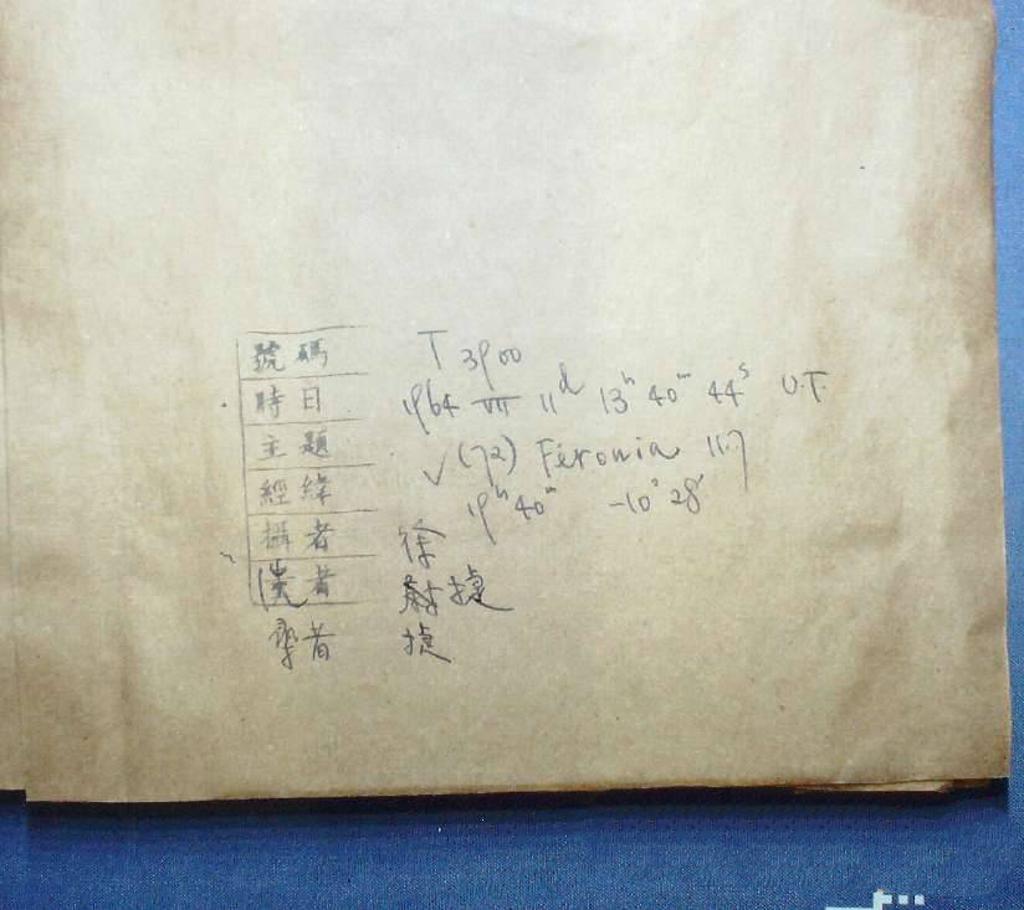 號碼 T 3900
時日 1964 VII 11d 13h 40m 44s U.T.
主題 √ (72) Feronia 11.7
經緯 19h 40m -10° 28'
攝者 徐
者 捷
者 捷